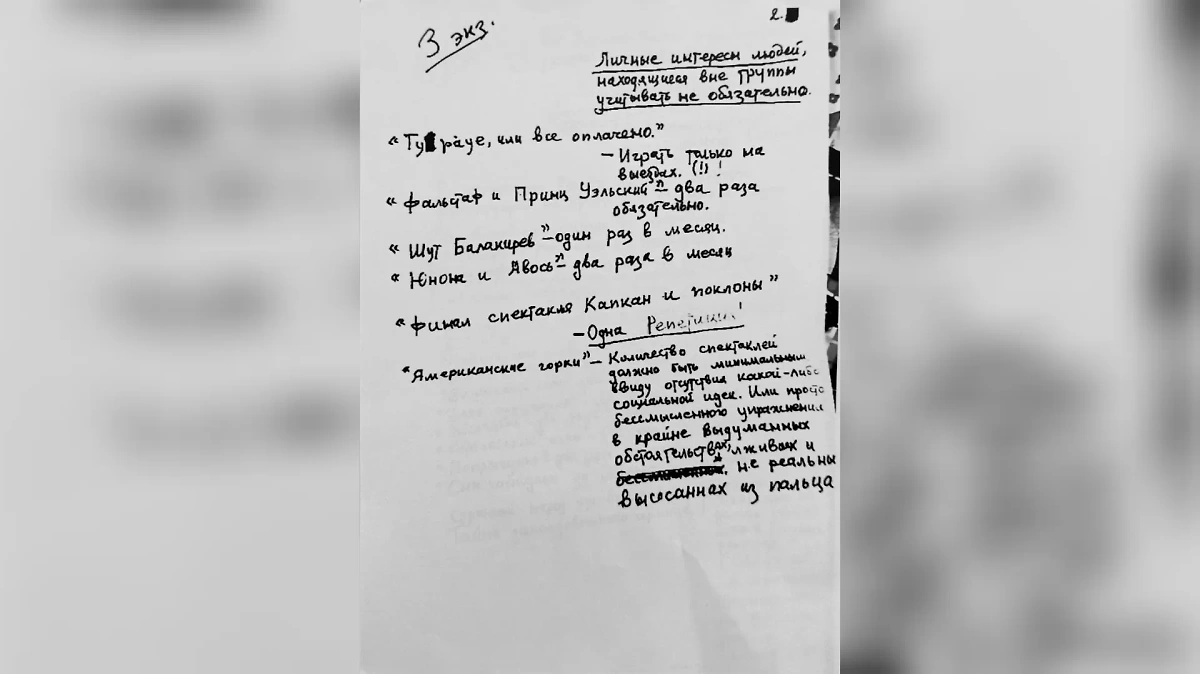 2.
3 экз.
Личные интересы людей,
находящиеся вне группы
учитывать не обязательно.
«Ту раце, или все оплачено."
— Играть только на
выездах. (!) !
«Фальстаф и Принц Уэльский" — два раза
обязательно.
« Шут Балакирев" — один раз в месяц.
« Юнона и Авось" — два раза в месяц
« Финал спектакля Капкан и поклоны"
— Одна Репетиция!
"Американские горки" — Количество спектаклей
должно быть минимальным
ввиду отсутствия какой-либо
социальной идеи. Или просто
бессмысленного упражнения
в крайне выдуманных
обстоятельствах, лживых и
не реальны
высосаннах из пальца